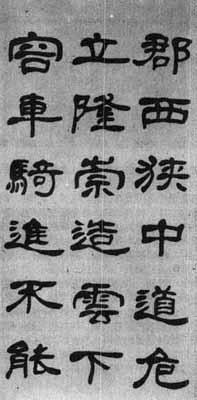 郡西狹中道危
立隆崇造雲下
容車騎進不能